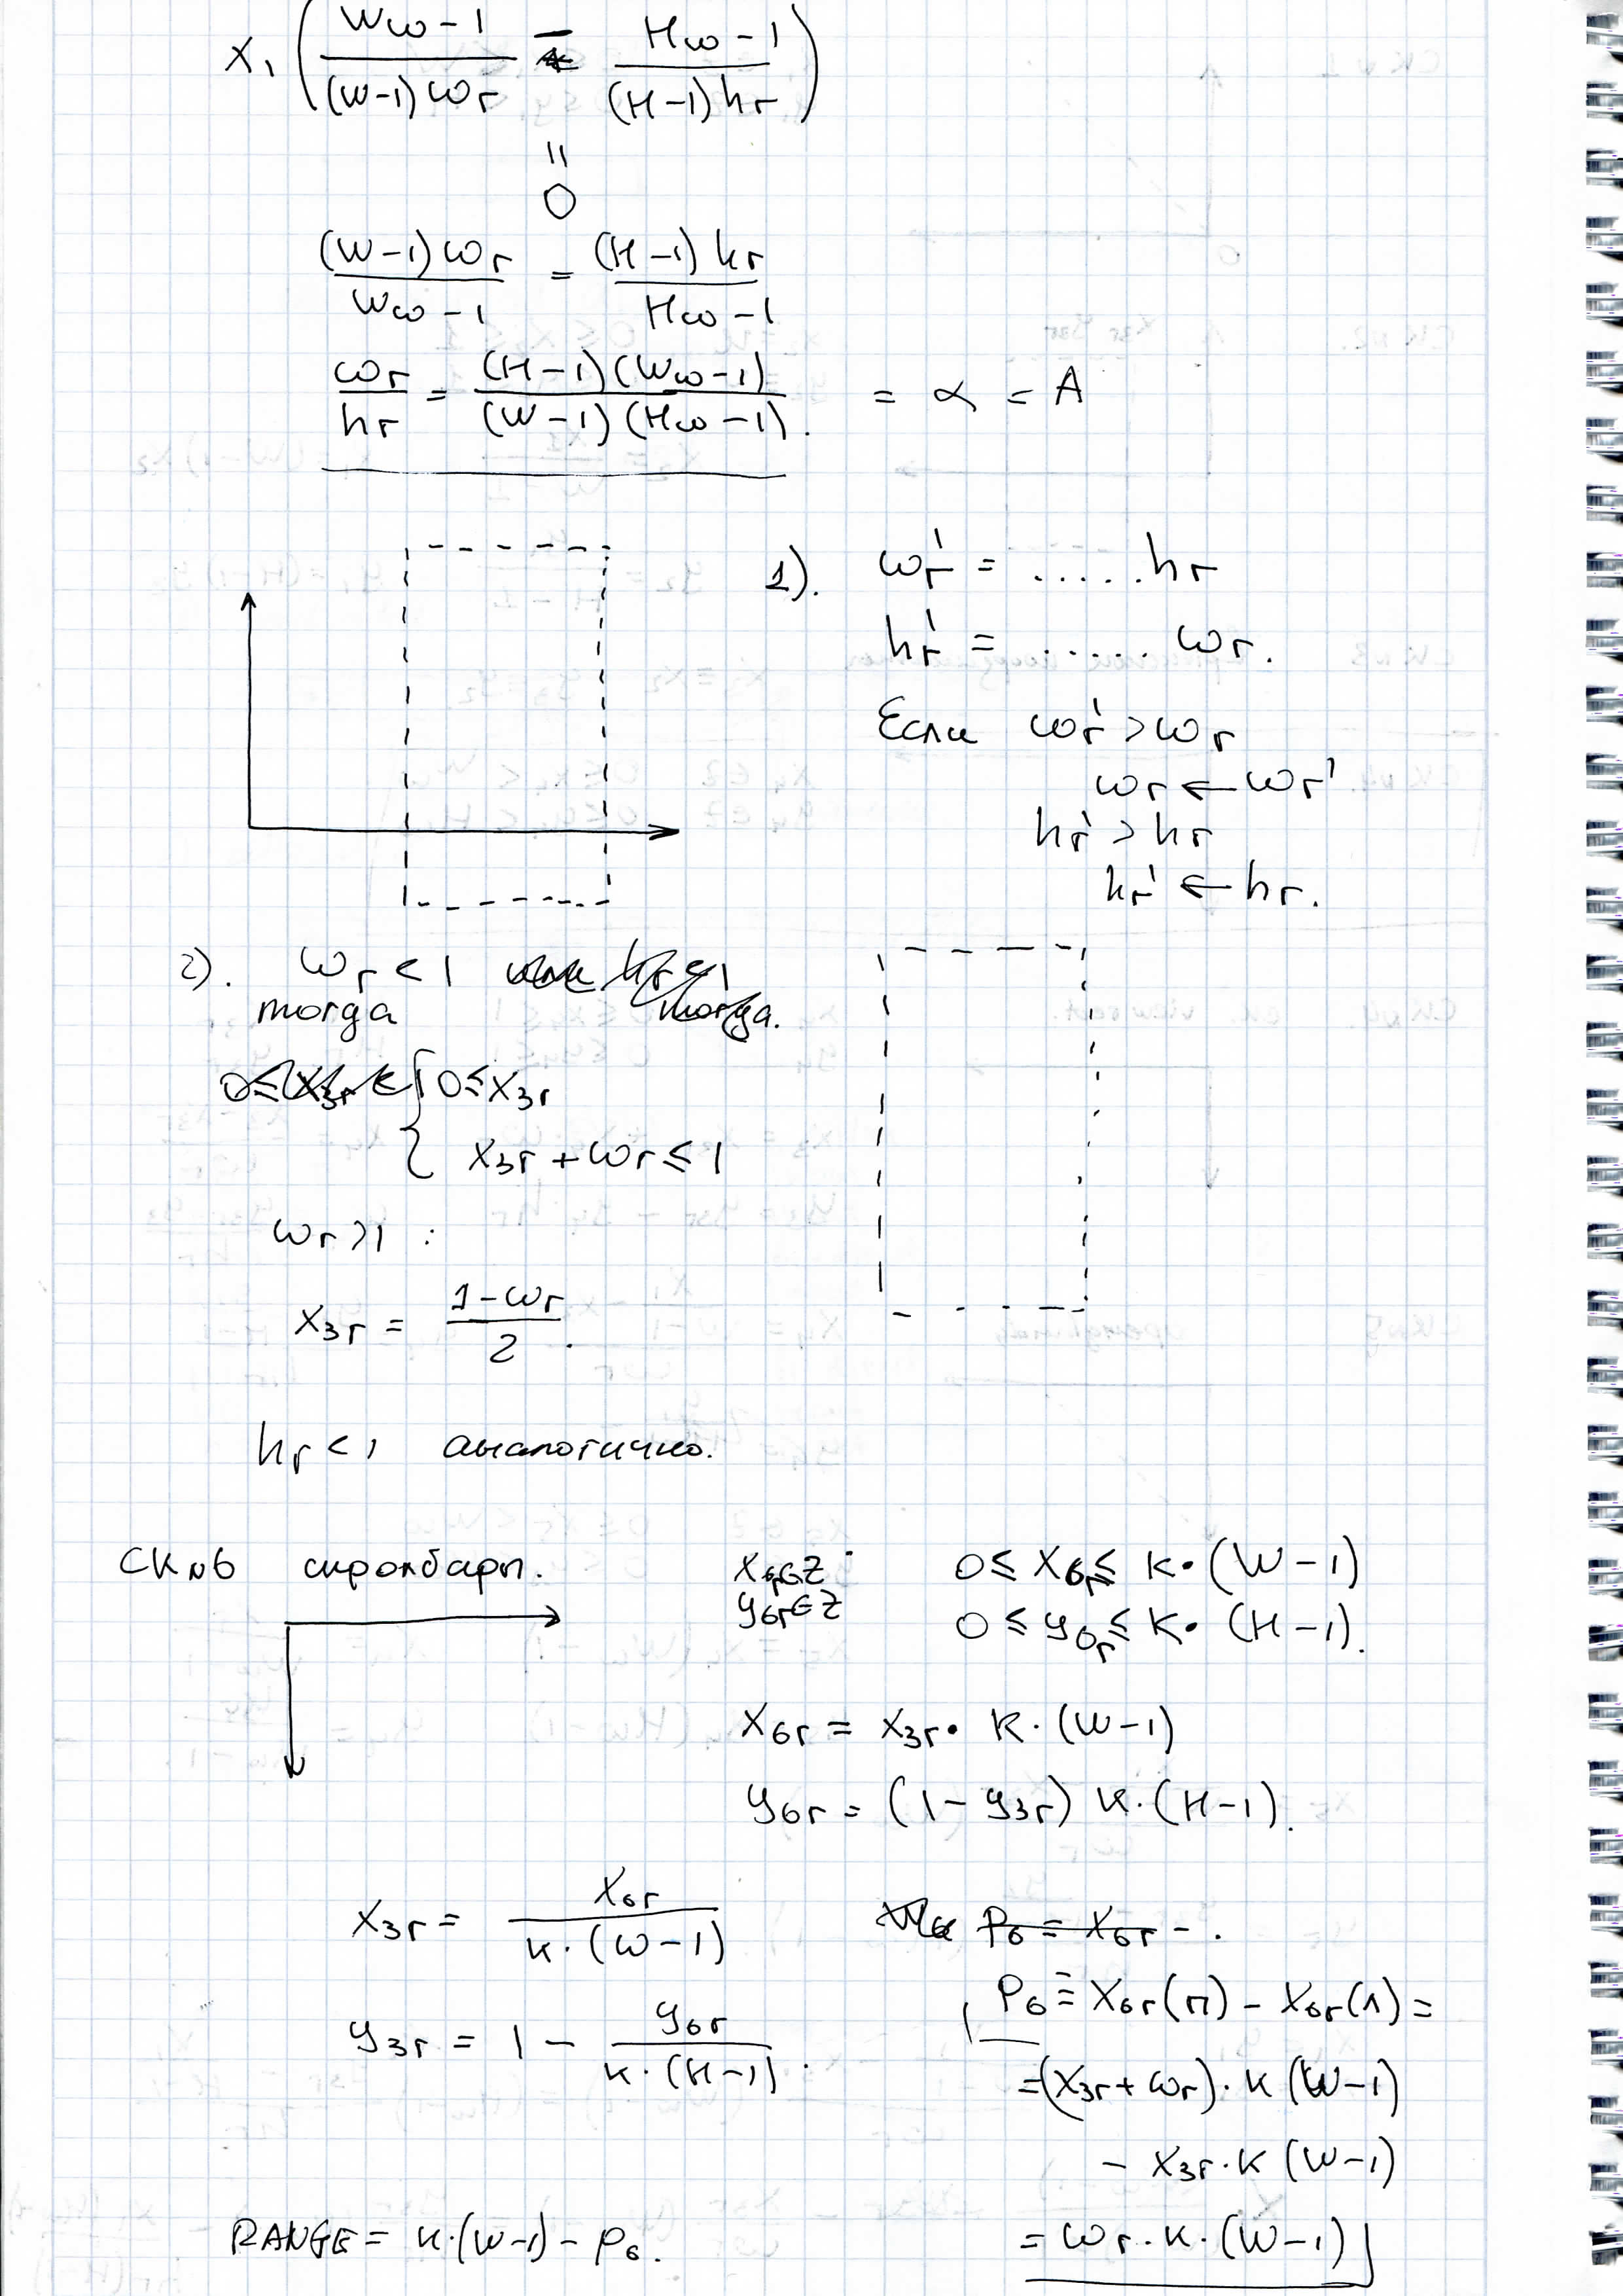 x₁ ( (Wω - 1)/((W-1)ωr) - (Hω - 1)/((H-1)hr) )
=
0
(W-1)ωr/(Wω - 1) = (H-1)hr/(Hω - 1)
ωr/hr = (H-1)(Wω-1)/((W-1)(Hω-1)). = α = A
1). ωr' = .....hr
hr' = ...... ωr.
Если ωr' > ωr
ωr ← ωr'
hr' > hr
hr' ← hr.
2). ωr < 1
тогда
{ 0 ≤ x₃r
x₃r + ωr ≤ 1
ωr > 1 :
x₃r = (1-ωr)/2.
hr < 1 аналогично.
СК№6 скролбары.
x₆r ∈ Z 0 ≤ x₆r ≤ k·(W-1)
y₆r ∈ Z 0 ≤ y₆r ≤ k·(H-1).
x₆r = x₃r · k·(W-1)
y₆r = (1 - y₃r) k·(H-1).
x₃r = x₆r/(k·(W-1))
P₆ = x₆r - .
y₃r = 1 - y₆r/(k·(H-1)).
P₆ ≡ x₆r(п) - x₆r(л) =
= (x₃r + ωr)·k(W-1)
- x₃r·k(W-1)
= ωr·k·(W-1)
RANGE = k·(W-1) - P₆.